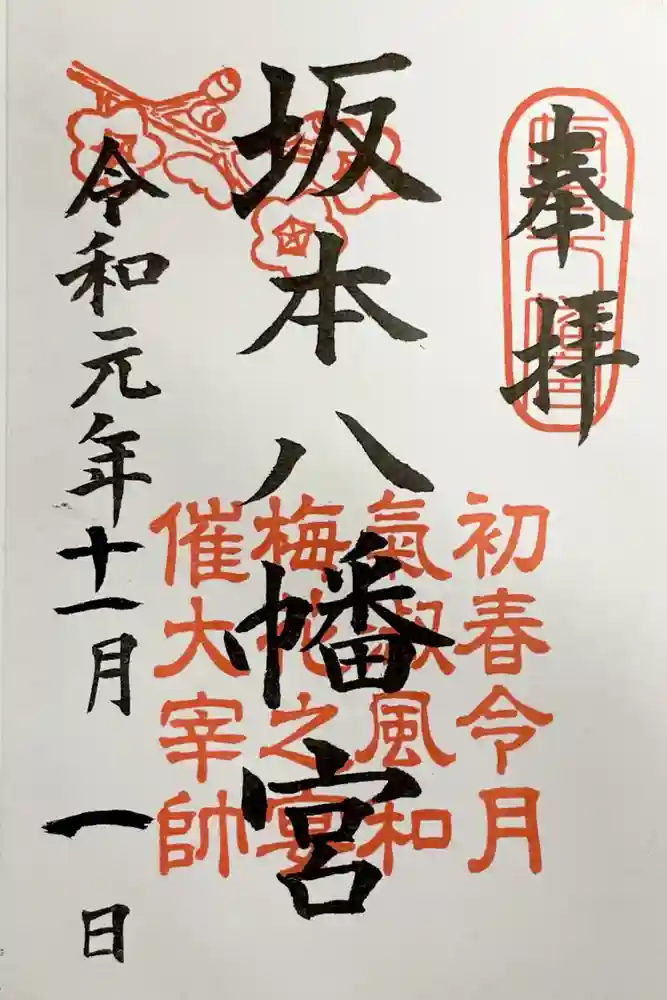 奉拝
坂本八幡宮
初春令月
氣淑風和
梅花之宴
催大宰帥
令和元年十一月一日